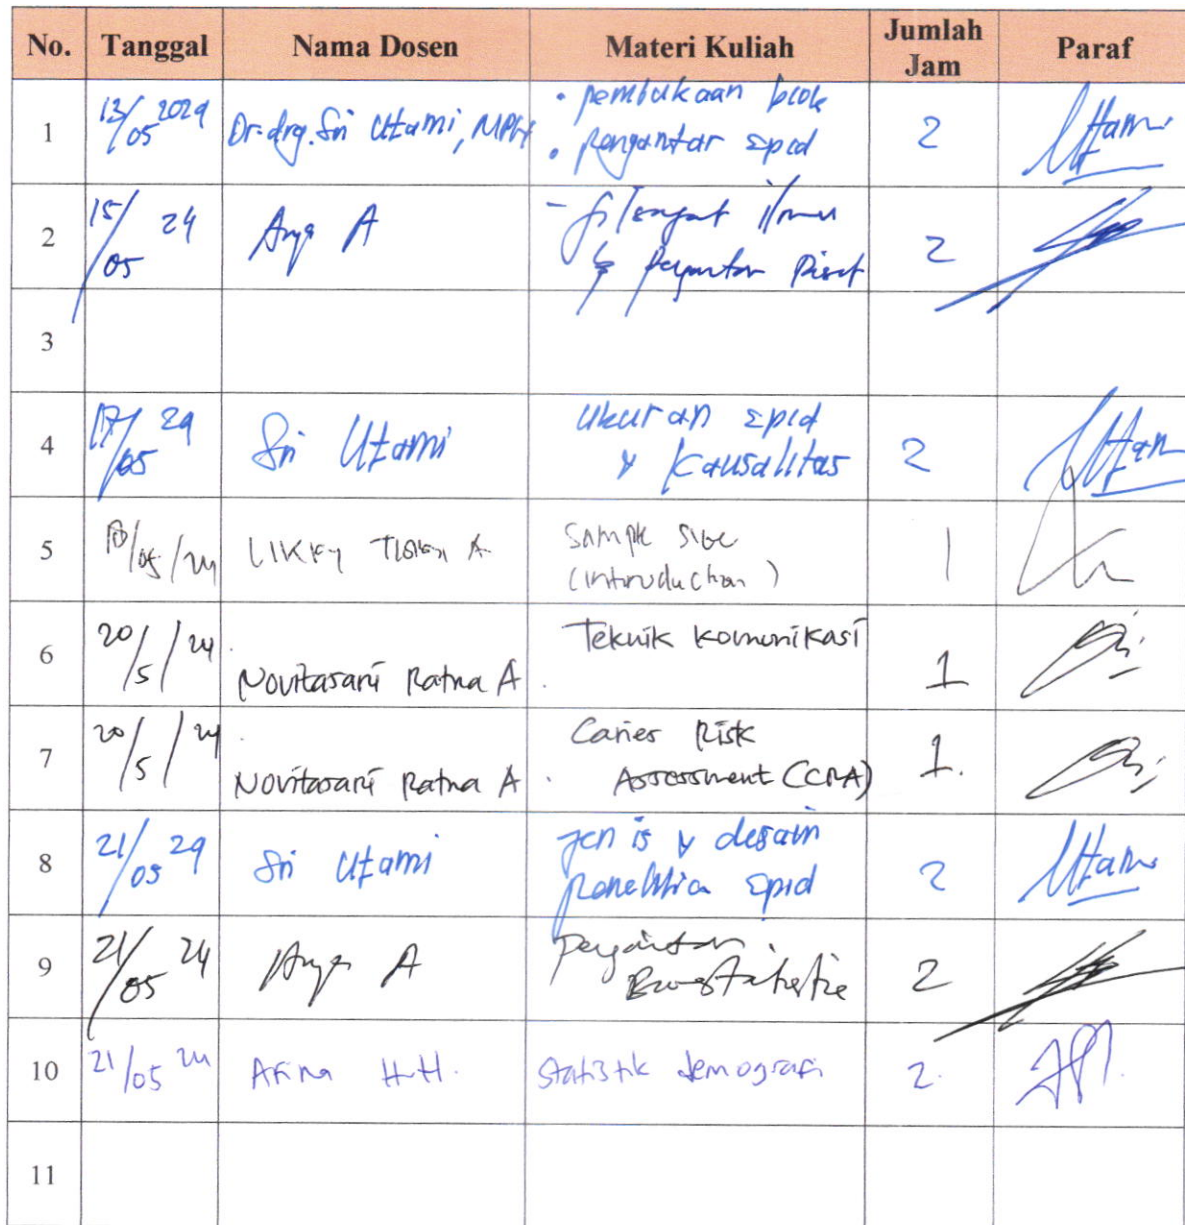 No. Tanggal Nama Dosen Materi Kuliah Jumlah Jam Paraf
1 13/05 2024 Dr. drg. Sri Utami, MPH • pembukaan blok 2 Utami
• pengantar epid
2 15/05 24 Arya A - filsafat ilmu 2
& pengantar Riset
3
4 17/05 24 Sri Utami ukuran epid 2 Utami
& kausalitas
5 18/05/24 LIKKY A Sample size 1
(introduction)
6 20/5/24 Novitasari Ratna A. Teknik komunikasi 1
7 20/5/24 Novitasari Ratna A. Caries Risk 1.
Assessment (CRA)
8 21/05 24 Sri Utami jenis & desain 2 Utami
penelitia epid
9 21/05 24 Arya A Pengantar 2
Biostatistic
10 21/05 24 Arina H.H. Statistik demografi 2.
11